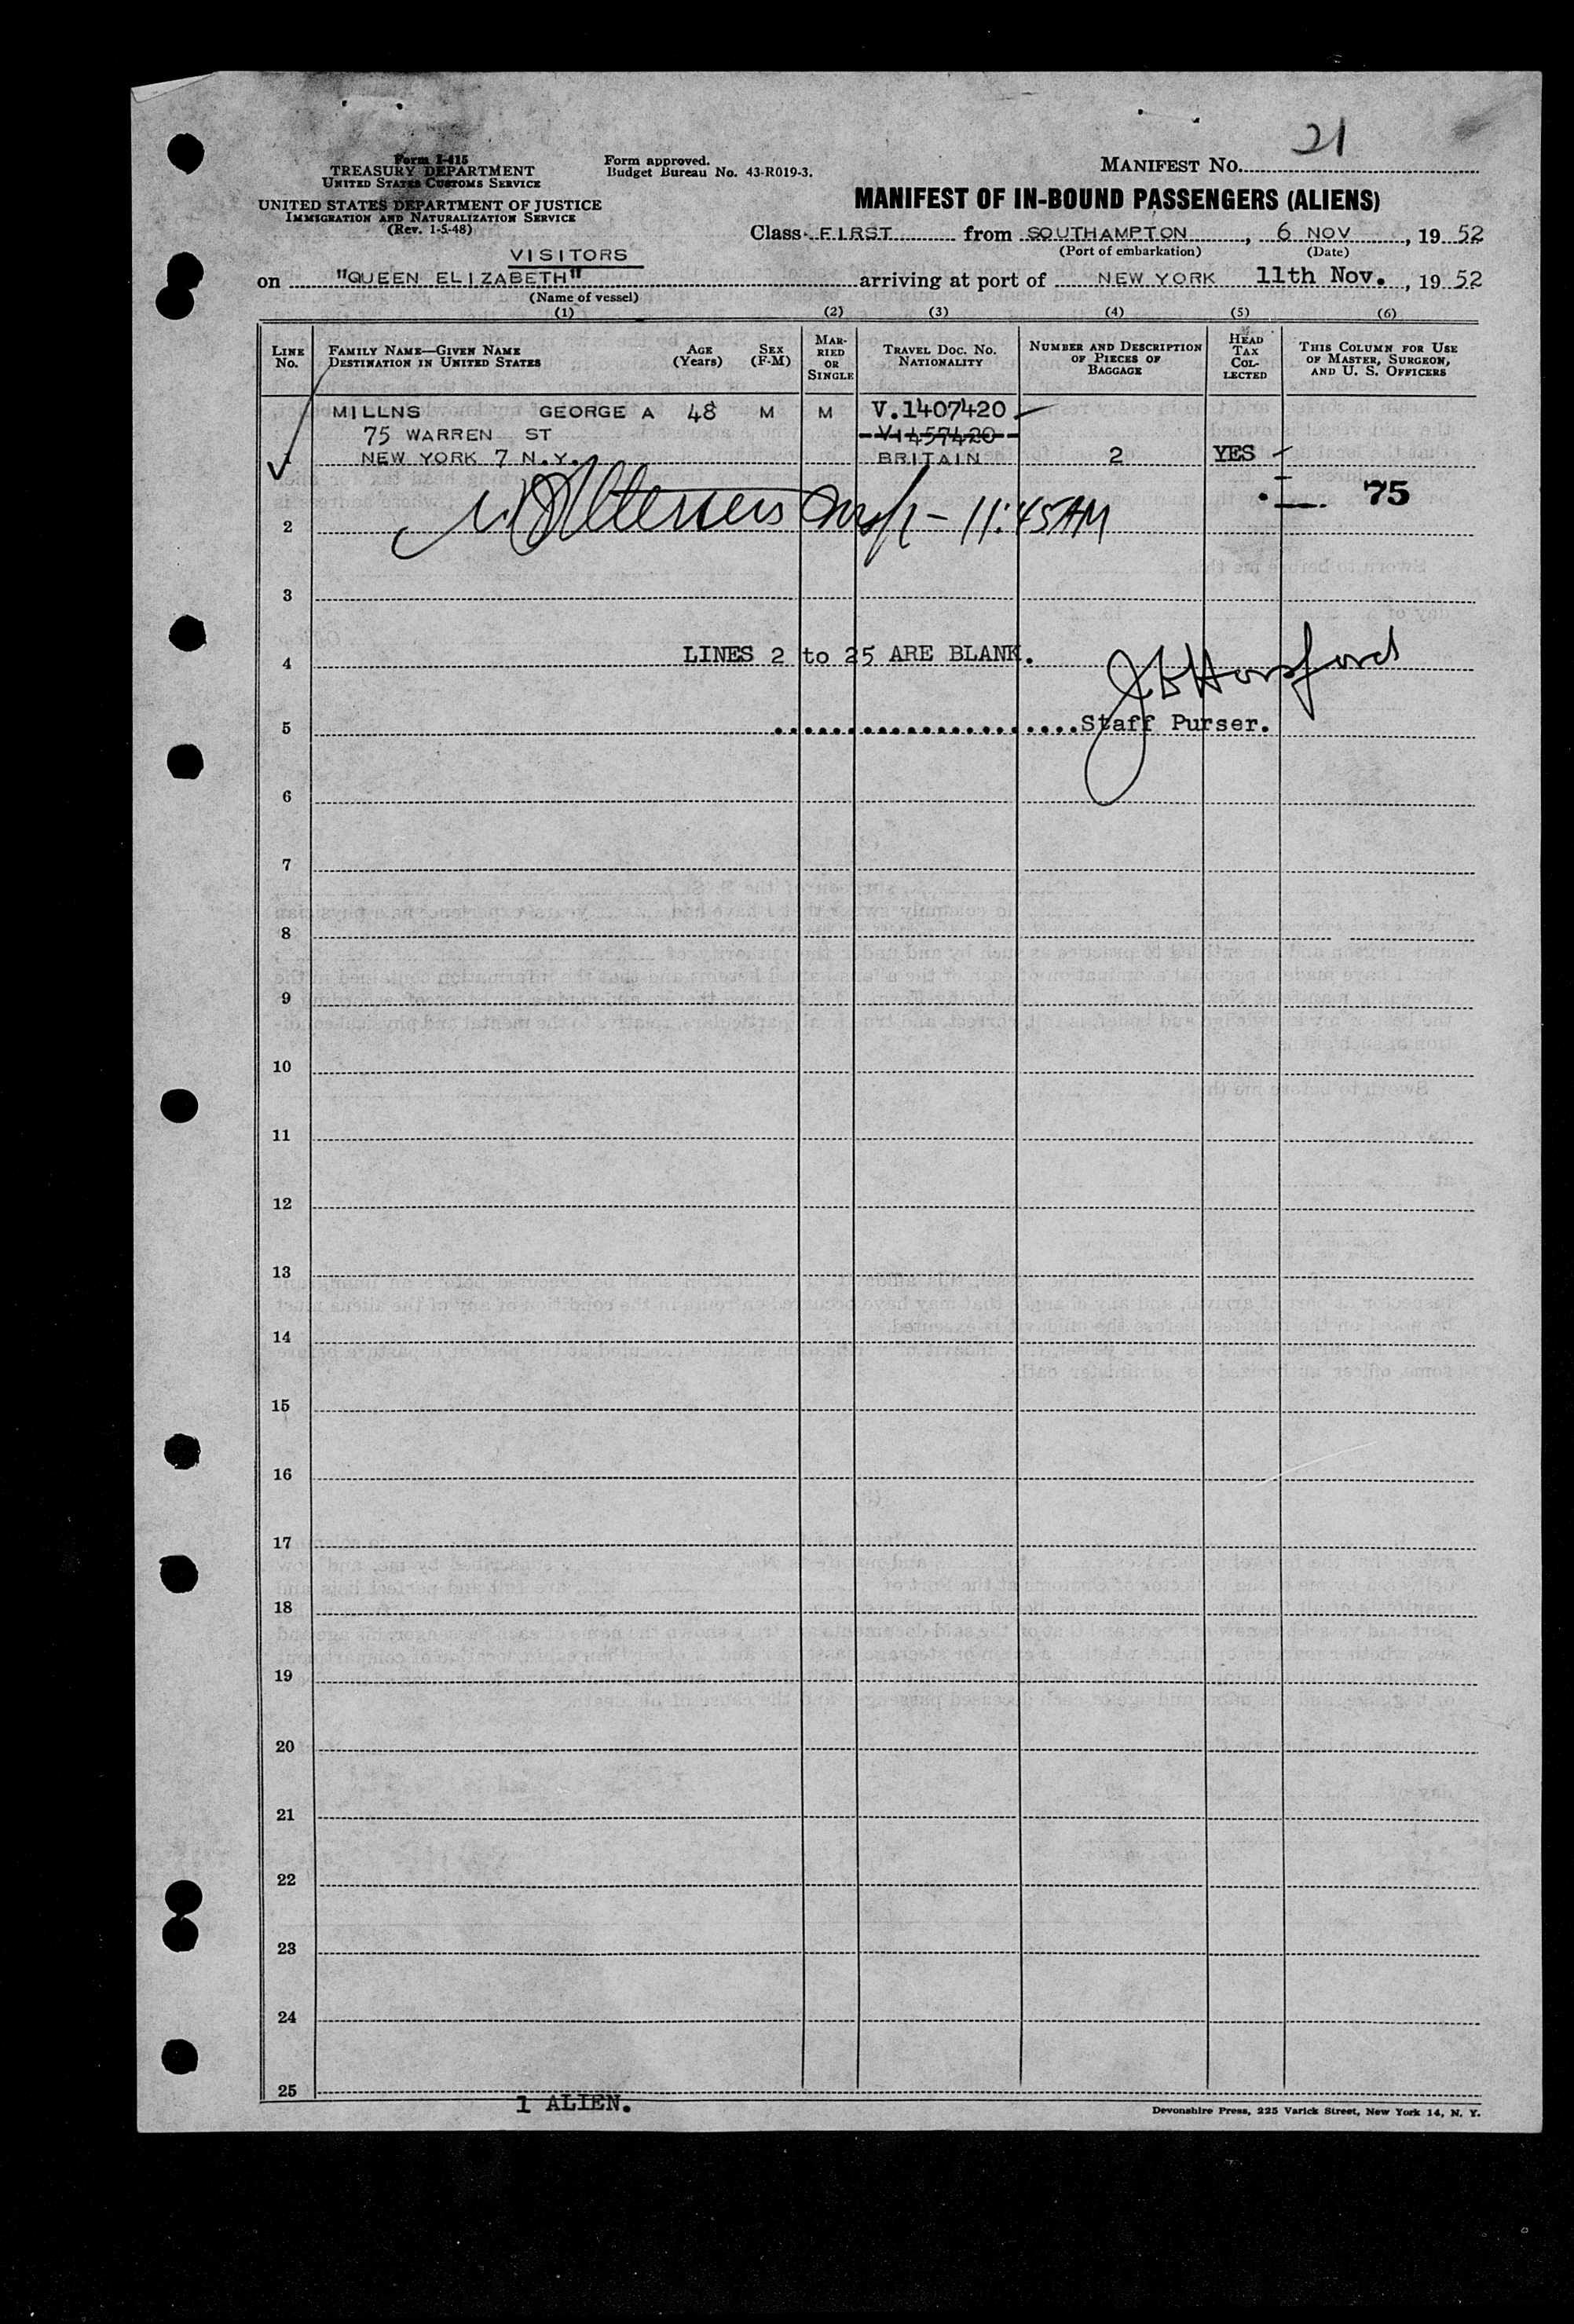 21
Form I-415
TREASURY DEPARTMENT
UNITED STATES CUSTOMS SERVICE
UNITED STATES DEPARTMENT OF JUSTICE
IMMIGRATION AND NATURALIZATION SERVICE
(Rev. 1-5-48)
Form approved.
Budget Bureau No. 43-R019-3.
MANIFEST NO.
MANIFEST OF IN-BOUND PASSENGERS (ALIENS)
Class FIRST from SOUTHAMPTON, 6 NOV, 19 52
(Port of embarkation) (Date)
VISITORS
on "QUEEN ELIZABETH" arriving at port of NEW YORK 11th Nov., 19 52
(Name of vessel)
(1) (2) (3) (4) (5) (6)
LINE NO. FAMILY NAME—GIVEN NAME DESTINATION IN UNITED STATES AGE (Years) SEX (F-M) MARRIED OR SINGLE TRAVEL DOC. NO. NATIONALITY NUMBER AND DESCRIPTION OF PIECES OF BAGGAGE HEAD TAX COLLECTED THIS COLUMN FOR USE OF MASTER, SURGEON, AND U. S. OFFICERS
MILLNS GEORGE A 48 M M V.1407420
75 WARREN ST V1457420
1 NEW YORK 7 N.Y. BRITAIN 2 YES
75
2 11:45AM
3
4 LINES 2 to 25 ARE BLANK.
J B Horsford
5 Staff Purser.
6
7
8
9
10
11
12
13
14
15
16
17
18
19
20
21
22
23
24
25
1 ALIEN.
Devonshire Press, 225 Varick Street, New York 14, N. Y.